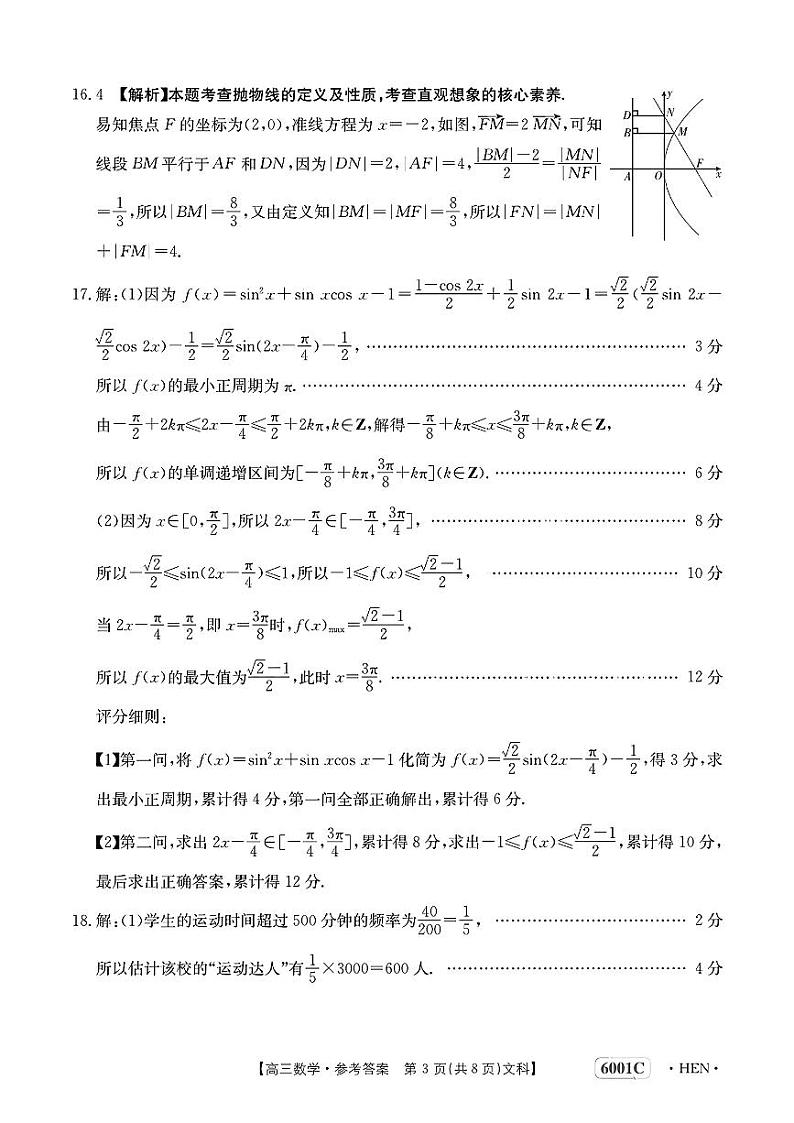 16.4 【解析】本题考查抛物线的定义及性质,考查直观想象的核心素养.
易知焦点 F 的坐标为(2,0),准线方程为 x=-2,如图,$\overrightarrow{FM}=2\overrightarrow{MN}$,可知
线段 BM 平行于 AF 和 DN,因为|DN|=2,|AF|=4,$\frac{|BM|-2}{2}=\frac{|MN|}{|NF|}$
$=\frac{1}{3}$,所以|BM|=$\frac{8}{3}$,又由定义知|BM|=|MF|=$\frac{8}{3}$,所以|FN|=|MN|
+|FM|=4.
y
D
N
B
M
A
O
F
x
17.解:(1)因为 f(x)=sin²x+sin xcos x-1=$\frac{1-\cos 2x}{2}+\frac{1}{2}$sin 2x-1=$\frac{\sqrt{2}}{2}$($\frac{\sqrt{2}}{2}$sin 2x-
$\frac{\sqrt{2}}{2}$cos 2x)-$\frac{1}{2}$=$\frac{\sqrt{2}}{2}$sin(2x-$\frac{π}{4}$)-$\frac{1}{2}$, …… 3 分
所以 f(x)的最小正周期为 π. …… 4 分
由-$\frac{π}{2}$+2kπ≤2x-$\frac{π}{4}$≤$\frac{π}{2}$+2kπ,k∈Z,解得-$\frac{π}{8}$+kπ≤x≤$\frac{3π}{8}$+kπ,k∈Z,
所以 f(x)的单调递增区间为[-$\frac{π}{8}$+kπ,$\frac{3π}{8}$+kπ](k∈Z). …… 6 分
(2)因为 x∈[0,$\frac{π}{2}$],所以 2x-$\frac{π}{4}$∈[-$\frac{π}{4}$,$\frac{3π}{4}$], …… 8 分
所以-$\frac{\sqrt{2}}{2}$≤sin(2x-$\frac{π}{4}$)≤1,所以-1≤f(x)≤$\frac{\sqrt{2}-1}{2}$, …… 10 分
当 2x-$\frac{π}{4}$=$\frac{π}{2}$,即 x=$\frac{3π}{8}$时,f(x)$_{max}$=$\frac{\sqrt{2}-1}{2}$,
所以 f(x)的最大值为$\frac{\sqrt{2}-1}{2}$,此时 x=$\frac{3π}{8}$. …… 12 分
评分细则:
【1】第一问,将 f(x)=sin²x+sin xcos x-1 化简为 f(x)=$\frac{\sqrt{2}}{2}$sin(2x-$\frac{π}{4}$)-$\frac{1}{2}$,得 3 分,求
出最小正周期,累计得 4 分,第一问全部正确解出,累计得 6 分.
【2】第二问,求出 2x-$\frac{π}{4}$∈[-$\frac{π}{4}$,$\frac{3π}{4}$],累计得 8 分,求出-1≤f(x)≤$\frac{\sqrt{2}-1}{2}$,累计得 10 分,
最后求出正确答案,累计得 12 分.
18.解:(1)学生的运动时间超过 500 分钟的频率为$\frac{40}{200}=\frac{1}{5}$, …… 2 分
所以估计该校的“运动达人”有$\frac{1}{5}$×3000=600 人. …… 4 分
【高三数学·参考答案 第 3 页(共 8 页)文科】 6001C ·HEN·